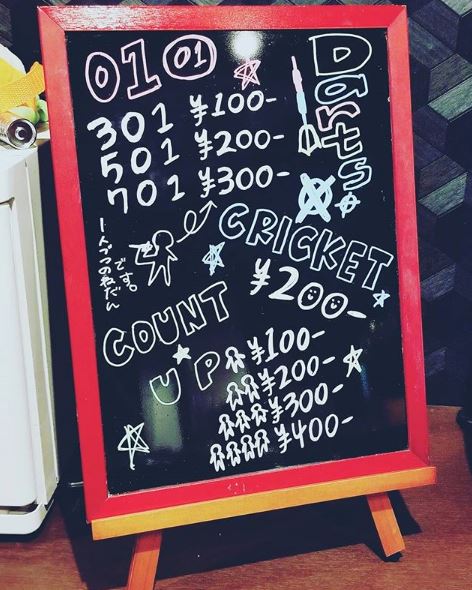 0101
Darts
301 ¥100-
501 ¥200-
701 ¥300-
1人ずつのねだん
です。
CRICKET
¥200-
COUNT
UP
¥100-
¥200-
¥300-
¥400-